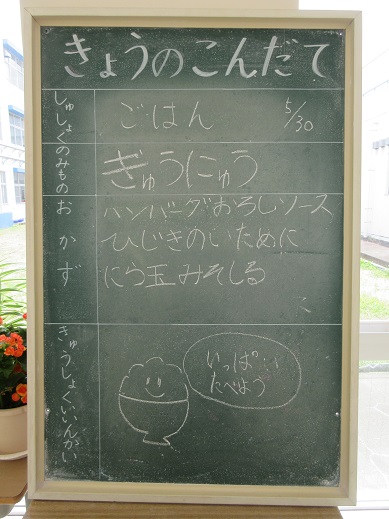 きょうのこんだて
しゅしょく
ごはん
5/30
のみもの
ぎゅうにゅう
おかず
ハンバーグおろしソース
ひじきのいために
にら玉みそしる
きゅうしょくいいんかい
いっぱい
たべよう